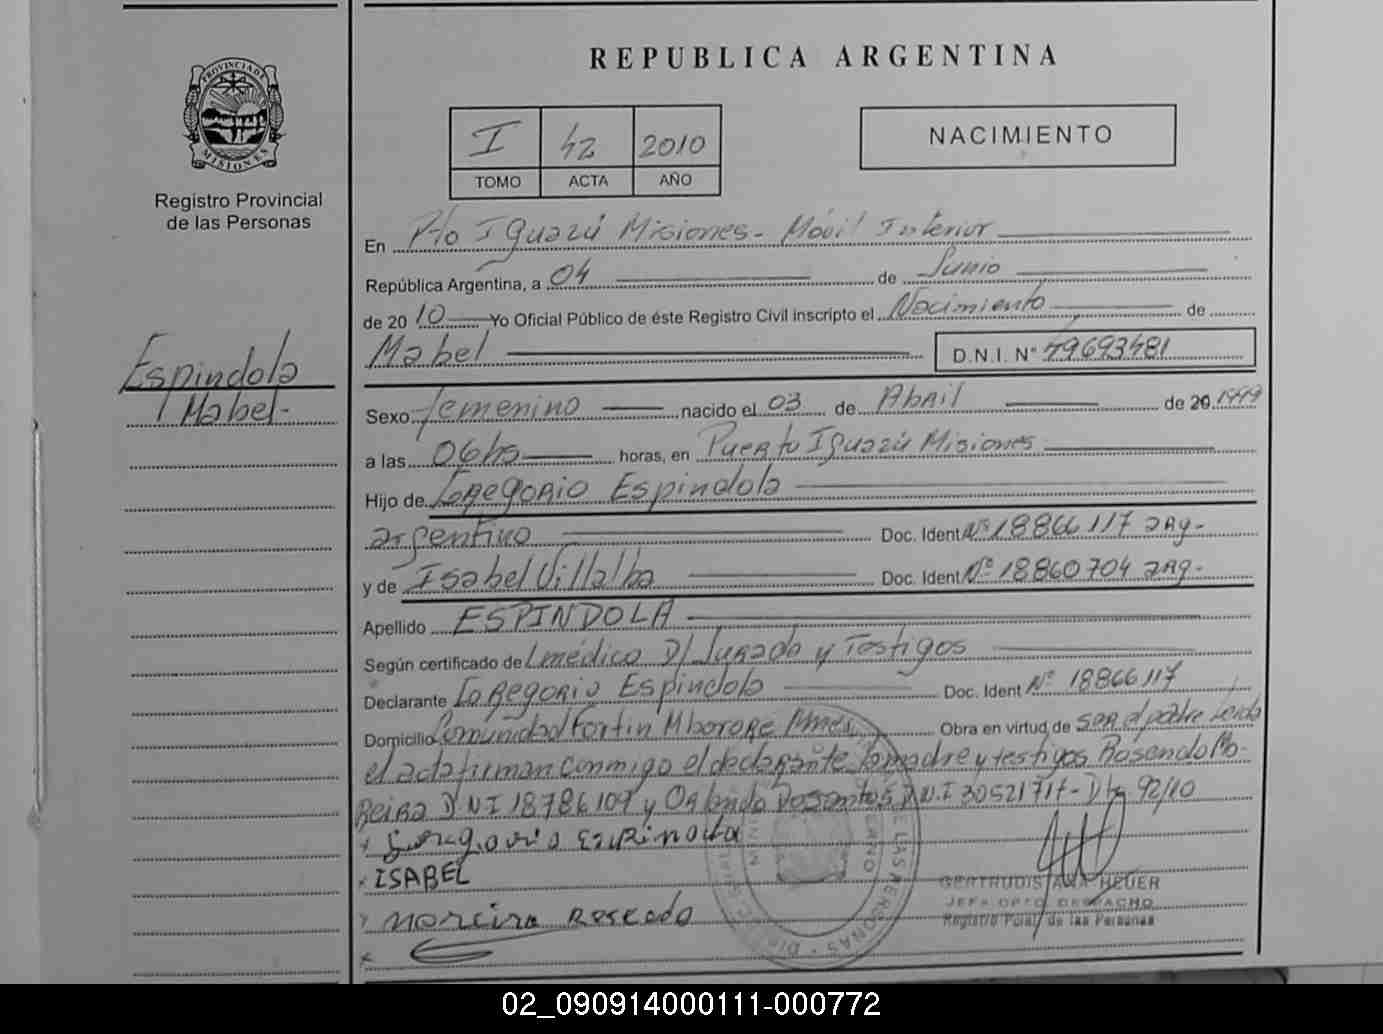 REPUBLICA ARGENTINA
PROVINCIA DE
MISIONES
Registro Provincial
de las Personas
I 42 2010
TOMO ACTA AÑO
NACIMIENTO
En Pto Iguazú Misiones - Móvil Interior
República Argentina, a 04 de Junio
de 2010 Yo Oficial Público de éste Registro Civil inscripto el Nacimiento de
Mabel D.N.I. Nº 49693481
Espindola
Mabel-
Sexo femenino nacido el 03 de Abril de 20 1999
a las 06hs horas, en Puerto Iguazú Misiones
Hijo de Gregorio Espindola
argentino Doc. Ident Nº 18866117 arg-
y de Isabel Villalba Doc. Ident Nº 18860704 arg-
Apellido ESPINDOLA
Según certificado de médico D/ Jurada y Testigos
Declarante Gregorio Espindola Doc. Ident Nº 18866117
Domicilio Comunidad Fortin Mborore Obra en virtud de ser el padre Leida
el acta firman conmigo el declarante la madre y testigos Rosendo Mo-
reira DNI 18786109 y Orlando Dosantos D.N.I 30521717- 92/10
ISABEL
moreira
GERTRUDIS ANA HEUER
JEFA DPTO. DESPACHO
Registro Pcial. de las Personas
02_090914000111-000772